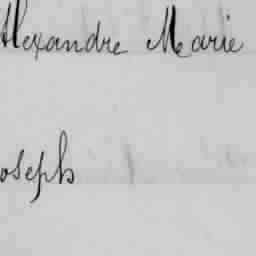 Alexandre Marie
oseph